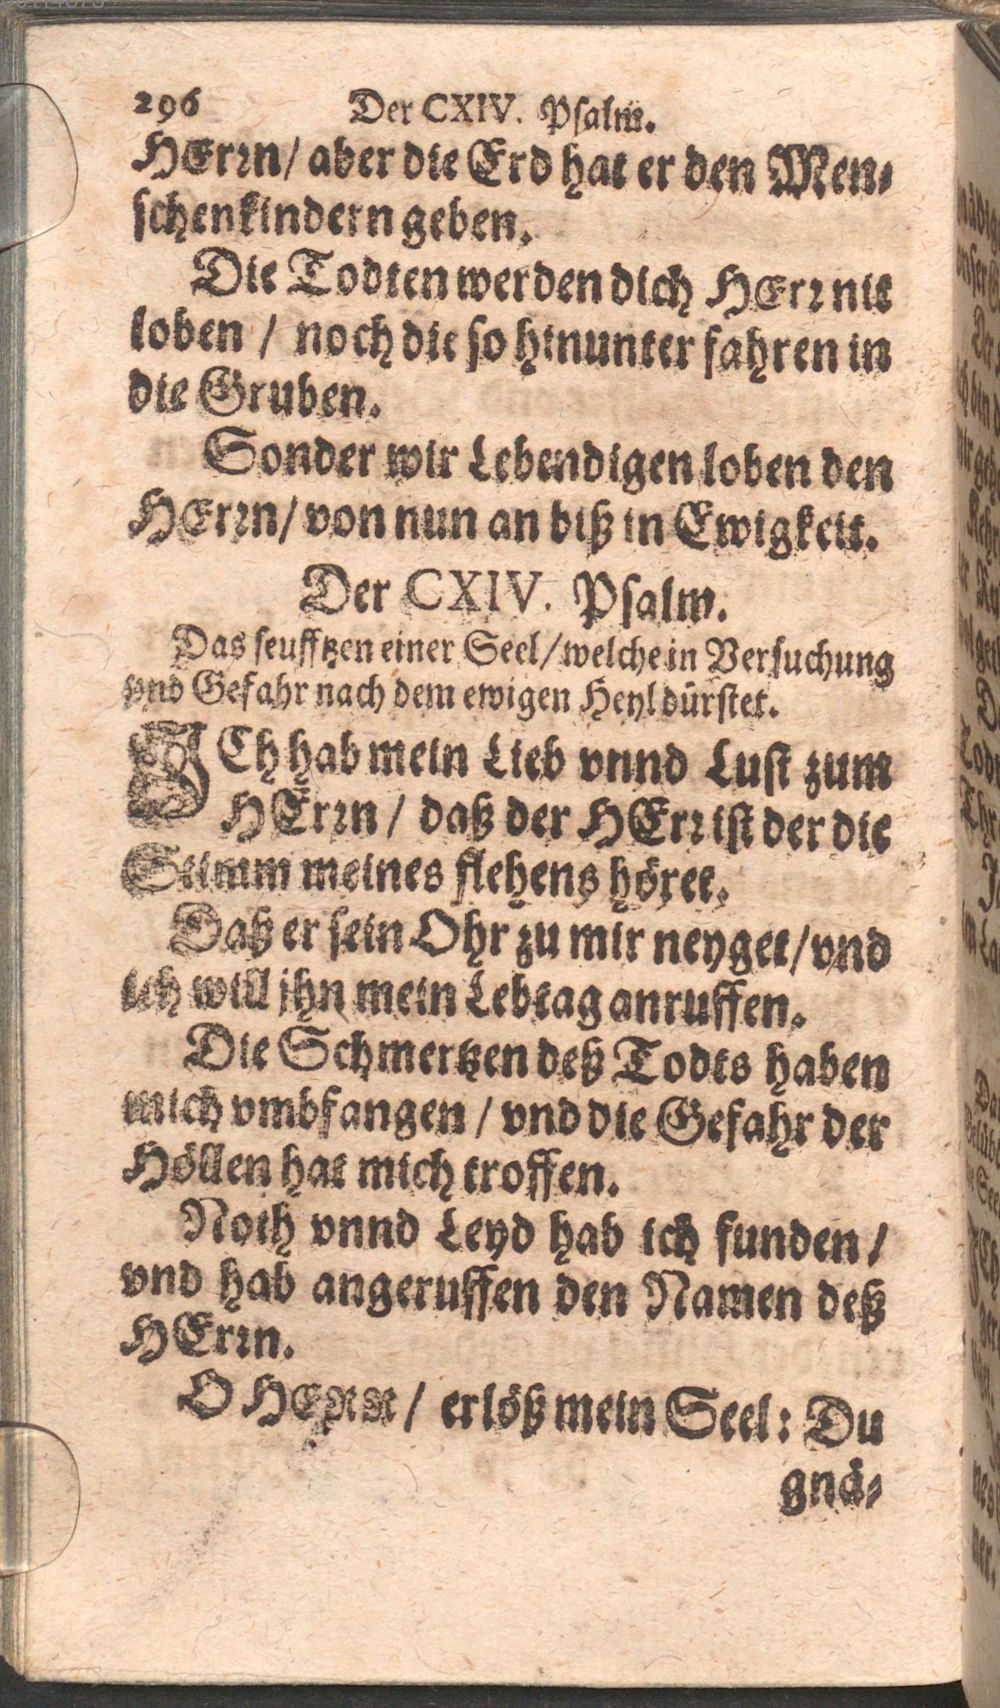 296 Der CXIV. Psalm.
HErꝛn/ aber die Erd hat er den Men⸗
schenkindern geben.
Die Todten werden dich HErꝛ nit
loben / noch die so hinunter fahren in
die Gruben.
Sonder wir Lebendigen loben den
HErꝛn/ von nun an biß in Ewigkeit.
Der CXIV. Psalm.
Das seufftzen einer Seel/ welche in Versuchung
vnd Gefahr nach dem ewigen Heyl dürstet.
ICh hab mein Lieb vnnd Lust zum
HErꝛn / daß der HErꝛ ist der die
Stimm meines flehens höret.
Daß er sein Ohr zu mir neyget/ vnd
ich will jhn mein Lebtag anruffen.
Die Schmertzen deß Todts haben
mich vmbfangen / vnd die Gefahr der
Höllen hat mich troffen.
Noth vnnd Leyd hab ich funden /
vnd hab angeruffen den Namen deß
HErꝛn.
O HERR / erlöß mein Seel: Du
gnä⸗